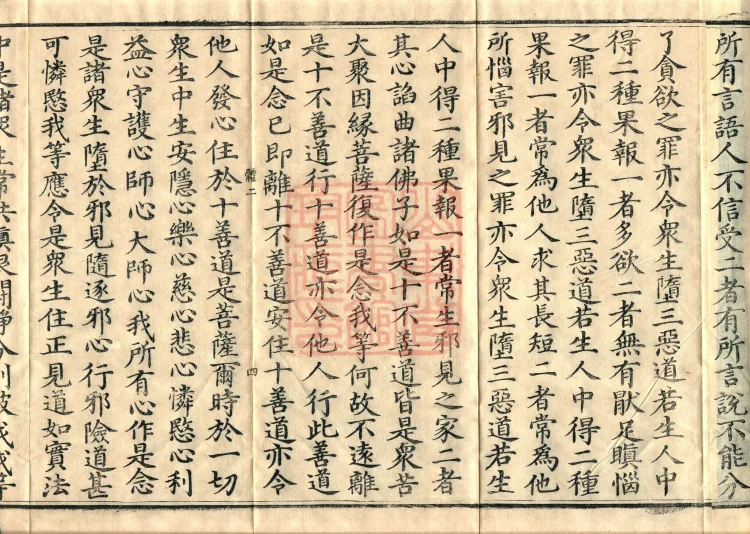 所有言語人不信受二者有所言說不能分
了貪欲之罪亦令衆生墮三惡道若生人中
得二種果報一者多欲二者無有猒足瞋惱
之罪亦令衆生墮三惡道若生人中得二種
果報一者常為他人求其長短二者常為他
所惱害邪見之罪亦令衆生墮三惡道若生
人中得二種果報一者常生邪見之家二者
其心諂曲諸佛子如是十不善道皆是衆苦
大聚因縁菩薩復作是念我等何故不遠離
是十不善道行十善道亦令他人行此善道
如是念已即離十不善道安住十善道亦令
二 四
他人發心住於十善道是菩薩爾時於一切
衆生中生安隱心樂心慈心悲心憐愍心利
益心守護心師心大師心我所有心作是念
是諸衆生墮於邪見隨逐邪心行邪險道甚
可憐愍我等應令是衆生住正見道如實法
中是諸衆生常共瞋恨鬪諍分別彼我我等